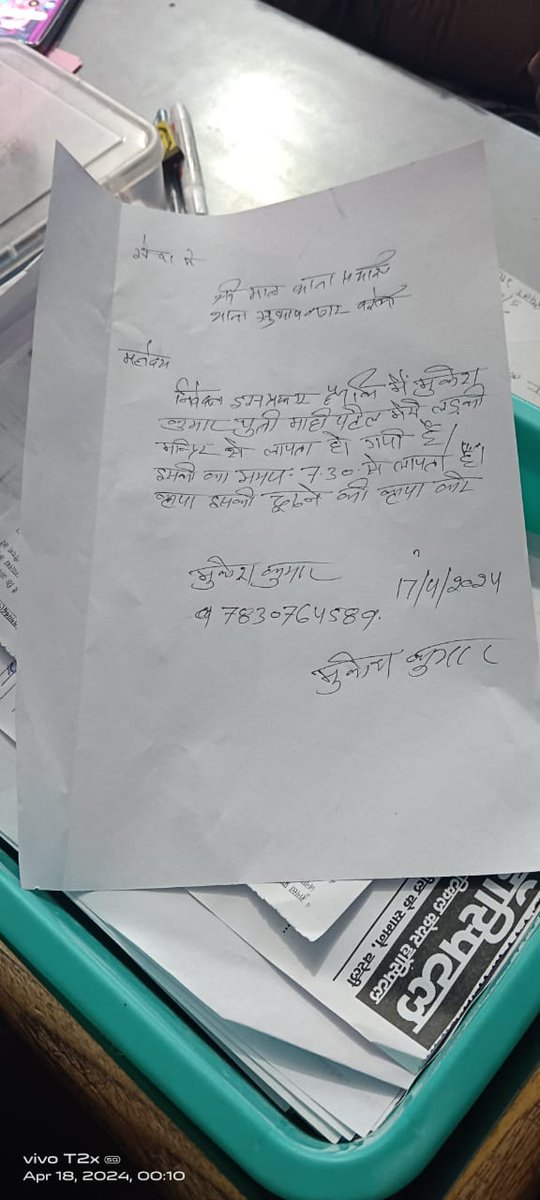 सेवा मे
श्री मान थाना प्रभारी
थाना सुभाषनगर बरेली
महोदय
निवेदन इस प्रकार है कि मैं मुकेश
कुमार पुत्री माही पटेल मेरी लड़की
मन्दिर से लापता हो गयी है।
इसका समय 7:30 से लापता है।
कृपा इसको ढूढने की कृपा करे
मुकेश कुमार
17/4/2024
7830764589.
मुकेश कुमार
टिकल केयर हॉस्पिटल
के सामने, बरेली
vivo T2x 5G
Apr 18, 2024, 00:10